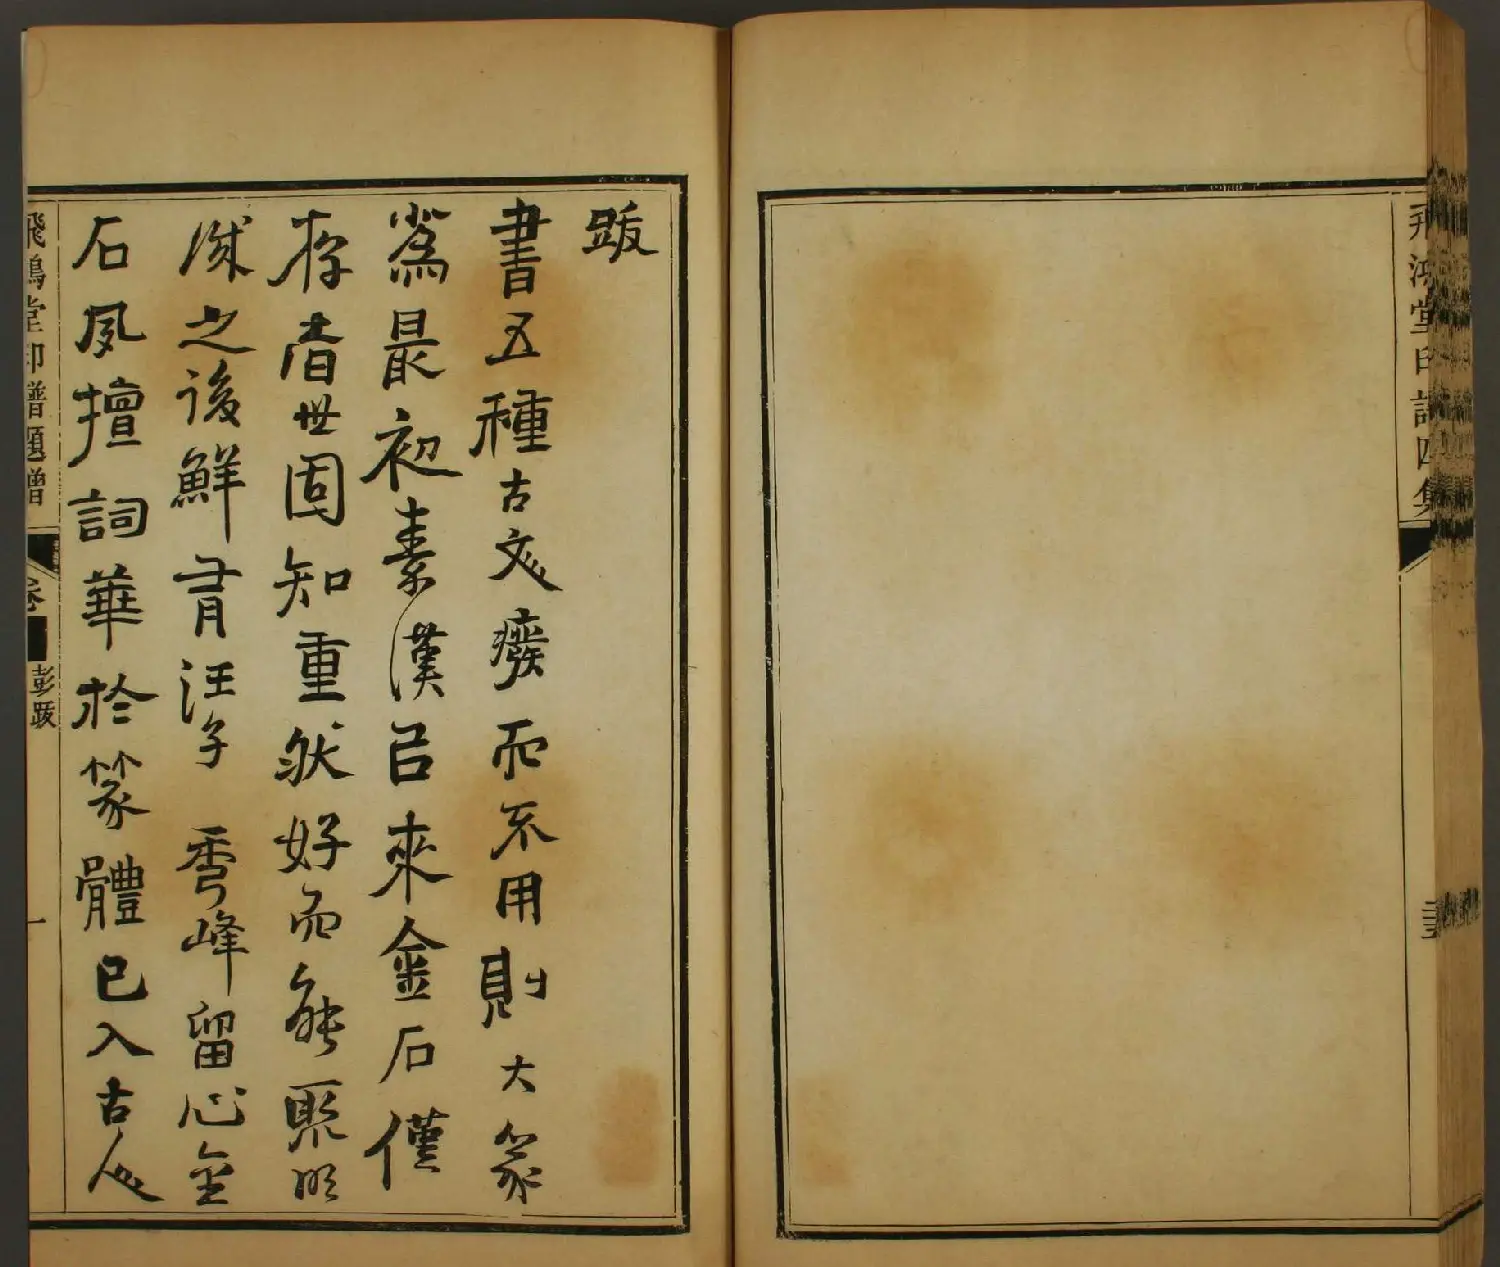 飛鴻堂印譜四集
跋
書五種古文廢而不用則大篆
爲最初秦漢㠯來金石僅
存者世固知重然好而能聚明
誠之後鮮有汪子秀峰留心金
石夙擅詞華於篆體已入古人
飛鴻堂印譜題贈 卷 彭跋 一